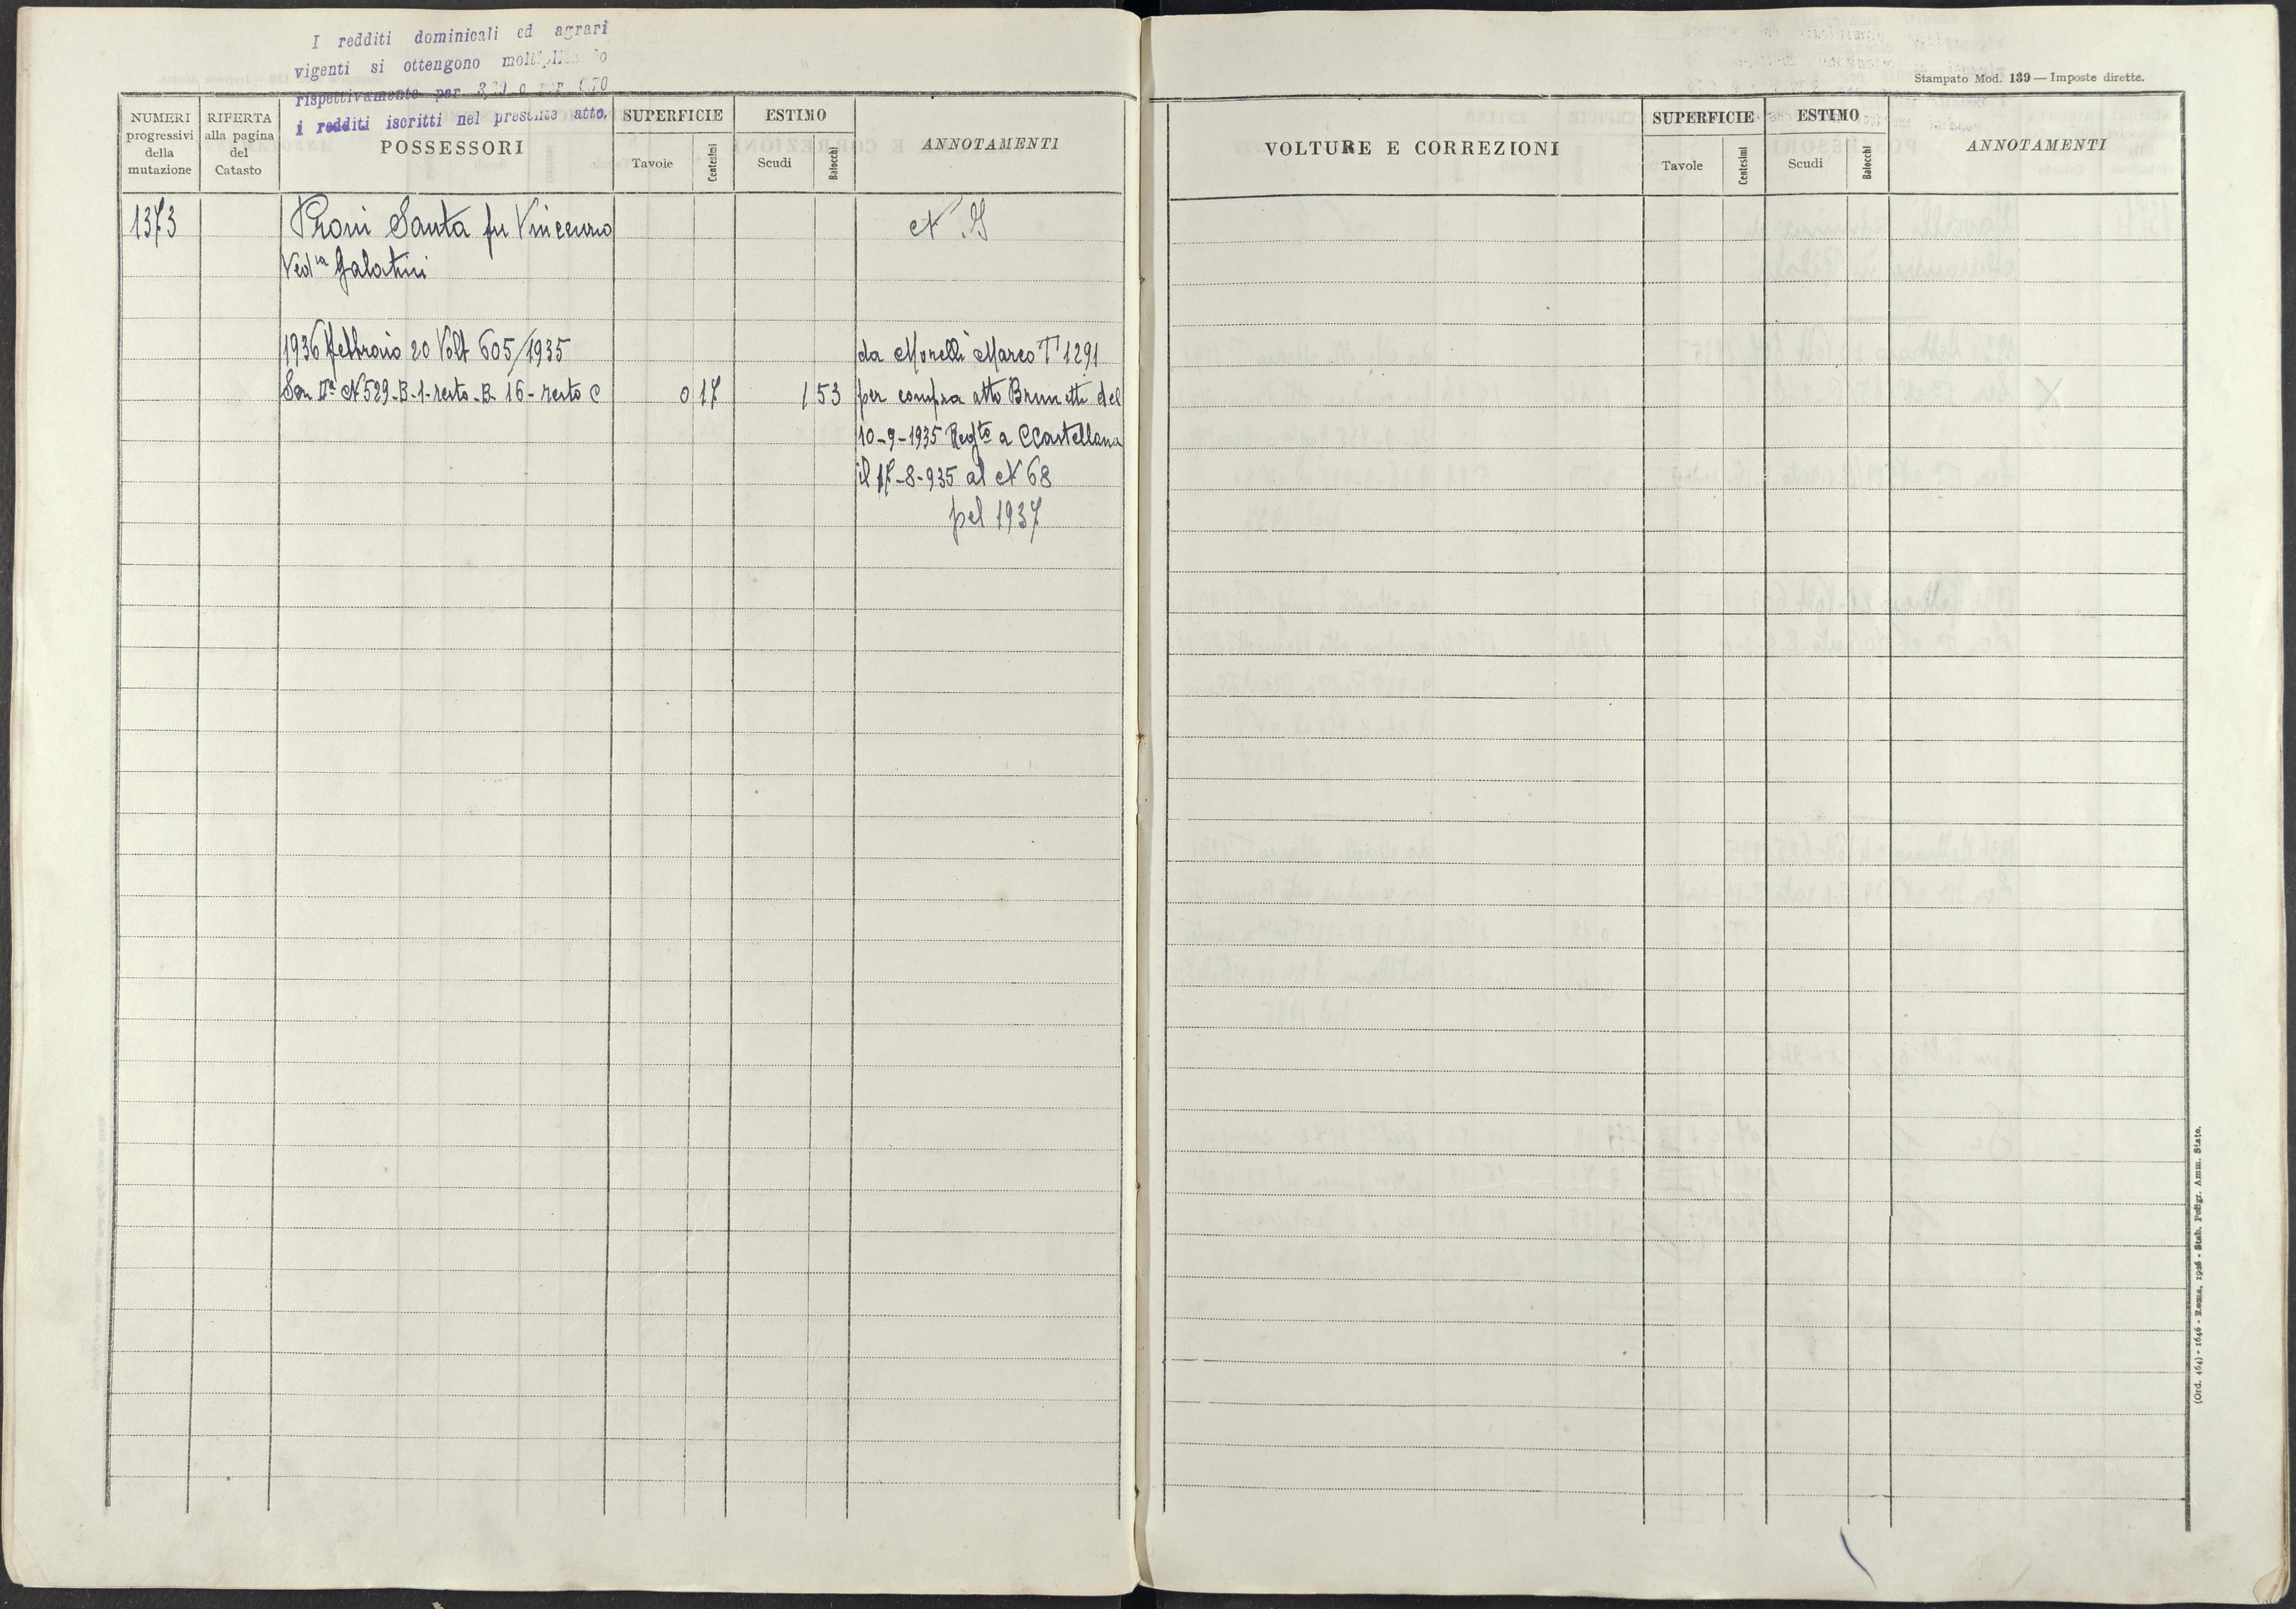 I redditi dominicali ed agrari
vigenti si ottengono moltiplicando
rispettivamente per
i redditi iscritti nel presente atto.
NUMERI progressivi della mutazione
RIFERTA alla pagina del Catasto
POSSESSORI
SUPERFICIE
Tavole
Centesimi
ESTIMO
Scudi
Baiocchi
ANNOTAMENTI
1373
Santa fu Vincenzo
N. G
Ved.va Galatini
1936 Febbraio 20 Volt 605/1935
da Morelli Marco T 1291
Sez IIa N 529-B-1-resto-B-16-resto C
0 17
1 53
per compra atto Brunetti del
10-9-1935 Regto a CCastellana
il 17-8-935 al N 68
pel 1937
Stampato Mod. 139 — Imposte dirette.
VOLTURE E CORREZIONI
SUPERFICIE
Tavole
Centesimi
ESTIMO
Scudi
Baiocchi
ANNOTAMENTI
(Ord. 464) - 1646 - Roma, 1926 - Stab. Poligr. Amm. Stato.